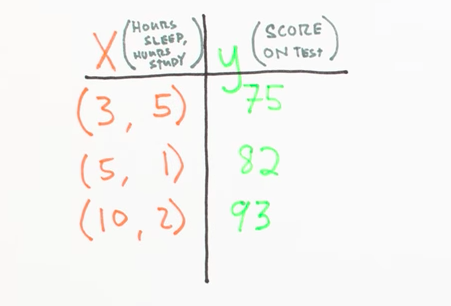 X (HOURS SLEEP, HOURS STUDY) y (SCORE ON TEST)
(3, 5) 75
(5, 1) 82
(10, 2) 93